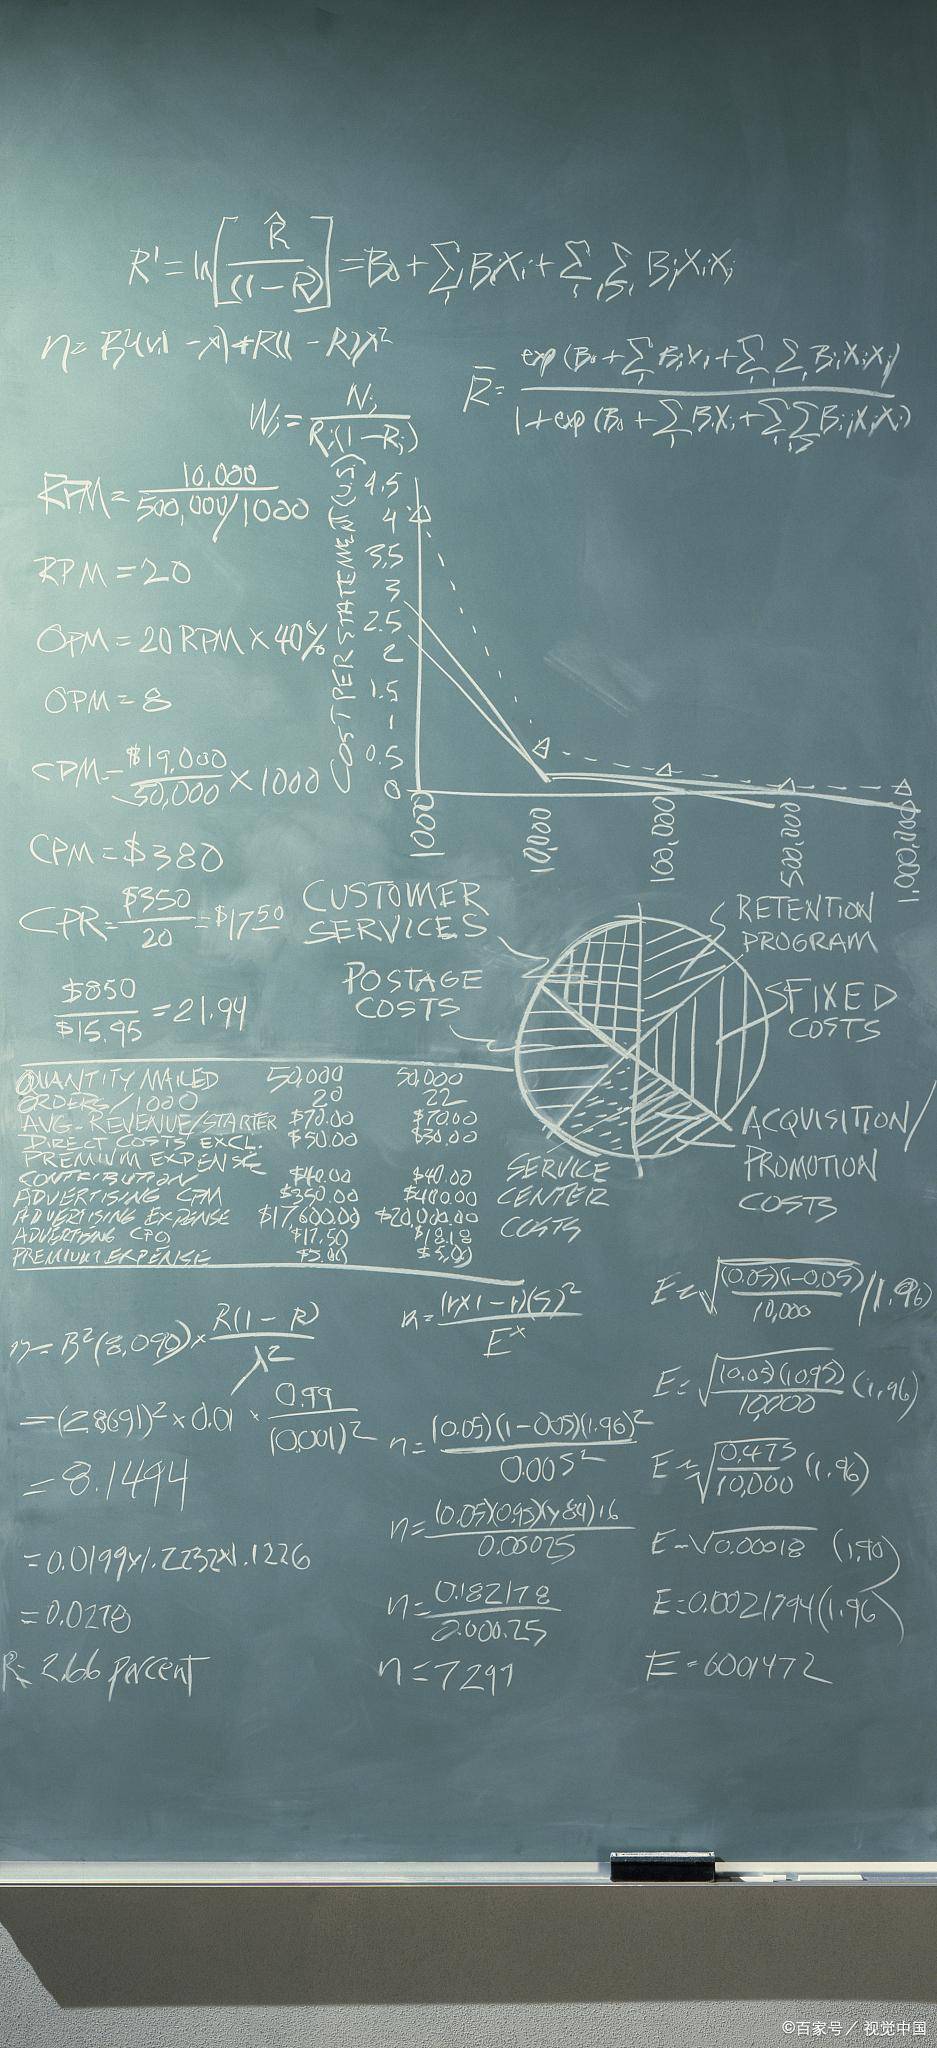 R' = ln[R̂/(1-R)] = B₀ + Σ BᵢXᵢ + Σ Σ BᵢⱼXᵢXⱼ
R̄ = exp(B₀ + Σ BᵢXᵢ + Σ Σ BᵢⱼXᵢXⱼ) / 1 + exp(B₀ + Σ BᵢXᵢ + Σ Σ BᵢⱼXᵢXⱼ)
Wⱼ = Nⱼ / Rⱼ(1-Rⱼ)
RPM = 10,000 / 500,000/1000
RPM = 20
OPM = 20 RPM × 40%
OPM = 8
CPM = $19,000 / 50,000 × 1000
CPM = $380
CPR = $350 / 20 = $17.50
$850 / $15.95 = 21.94
COST PER STATEMENT (U.S.)
4.5
4
3.5
3
2.5
2
1.5
1
0.5
0
1000
10,000
100,000
500,000
1,000,000
CUSTOMER SERVICES
POSTAGE COSTS
RETENTION PROGRAM
FIXED COSTS
ACQUISITION/ PROMOTION COSTS
SERVICE CENTER COSTS
QUANTITY MAILED 50,000 50,000
ORDERS/1000 20 22
AVG. REVENUE/STARTER $70.00 $70.00
DIRECT COSTS EXCL. $30.00 $30.00
PREMIUM EXPENSE
CONTRIBUTION $40.00 $40.00
ADVERTISING CPM $350.00 $400.00
ADVERTISING EXPENSE $17,600.00 $20,000.00
ADVERTISING CPO $17.50 $18.18
PREMIUM EXPENSE $5.00 $5.00
n = B²(8,090) × R(1-R) / λ²
= (2.8691)² × 0.01 × 0.99 / (0.001)²
= 8.1494
= 0.0199×1.2232×1.1226
= 0.0278
R = 2.66 percent
n = (r)(1-r)(S)² / Eˣ
n = (0.05)(1-0.05)(1.96)² / 0.005²
n = 0.182178 / 0.00025
n = 7291
E = √(0.05)(1-0.05) / 10,000 (1.96)
E = √(0.05)(0.95) / 10,000 (1.96)
E = √0.475 / 10,000 (1.96)
E = 0.0021794(1.96)
©百家号／视觉中国